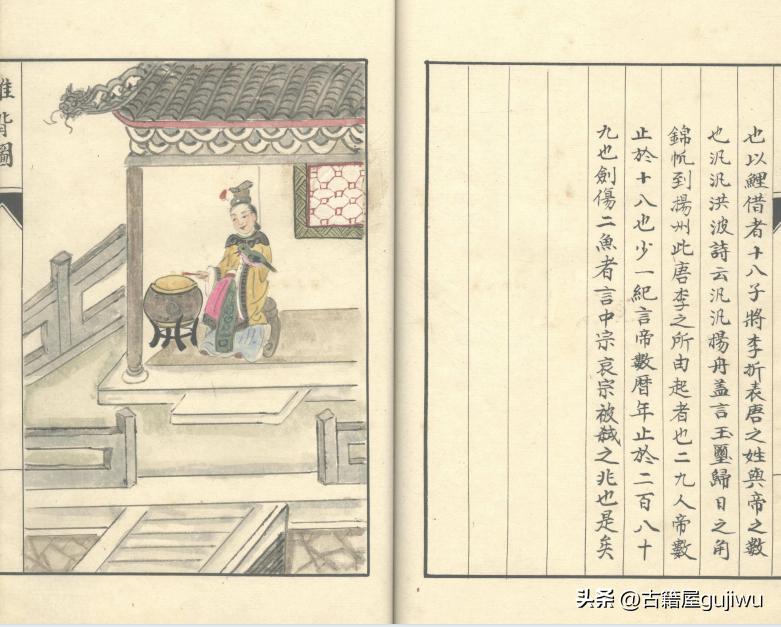 也以鯉借者十八子將李折表唐之姓與帝之數
也汎汎洪波詩云汎汎揚舟蓋言玉璽歸日之角
錦帆到揚州此唐李之所由起者也二九人帝數
止於十八也少一紀言帝數曆年止於二百八十
九也劍傷二魚者言中宗哀宗被弒之兆也是矣
推背圖
头条 @古籍屋gujiwu